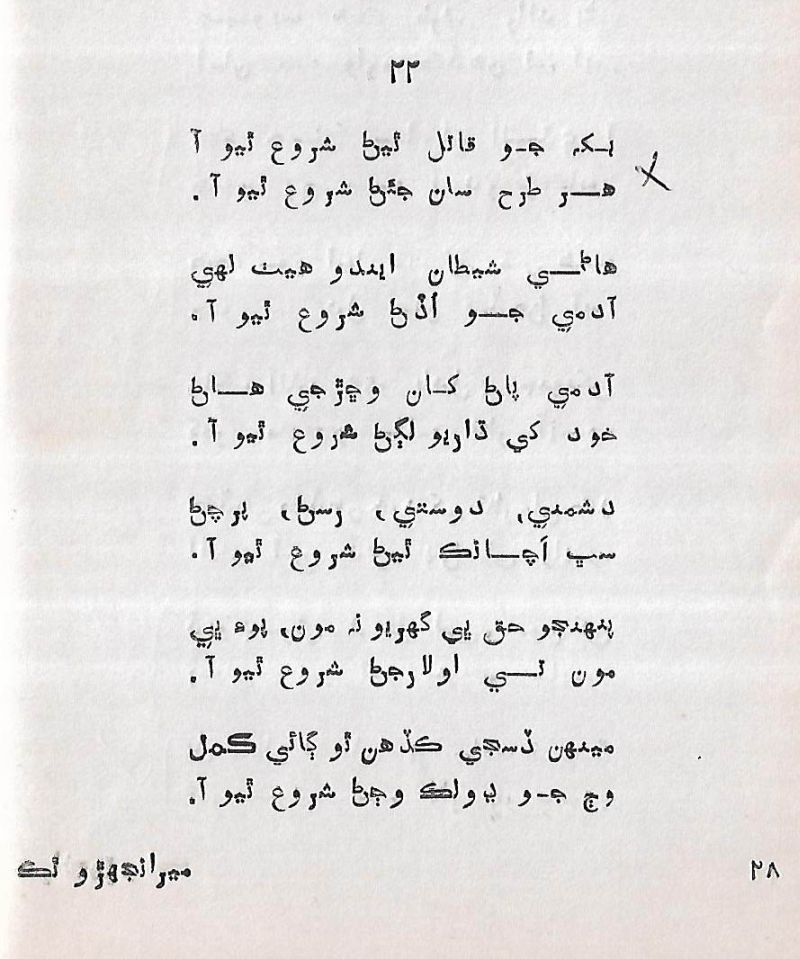 ۲۲
ٻـکہ جـو قائل ٿيڻ شروع ٿيو آ
هــر طرح سان جئڻ شروع ٿيو آ.
هاڻــي شيطان ايندو هيٺ لهي
آدمي جــو اُڏڻ شروع ٿيو آ.
آدمي پاڻ کـان وڇڙجي هــاڻ
خود کي ڌاريو لڳڻ شروع ٿيو آ.
دشمني، دوستي، رسڻ، پرچڻ
سڀ اَچــانڪ ٿيڻ شروع ٿيو آ.
پنهنجو حق ڀي گهريو نہ مون، پوءِ ڀي
مون تــي اولارجڻ شروع ٿيو آ.
مينهن ڏسجي ڪڏهن ٿو ڳائي ڪمل
وڄ جـو ڀولڪ وڄڻ شروع ٿيو آ.
۲۸
ميرانجهڙو ٿڪ